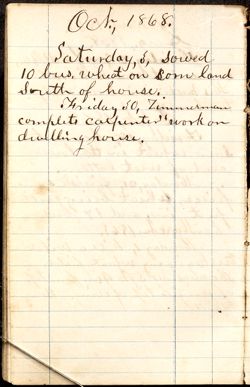 Oct, 1868.
Saturday, 3, sowed
10 bus, wheat on corn land
South of house.
Friday 30, Zimmerman
complete carpenter work on
dwelling house.